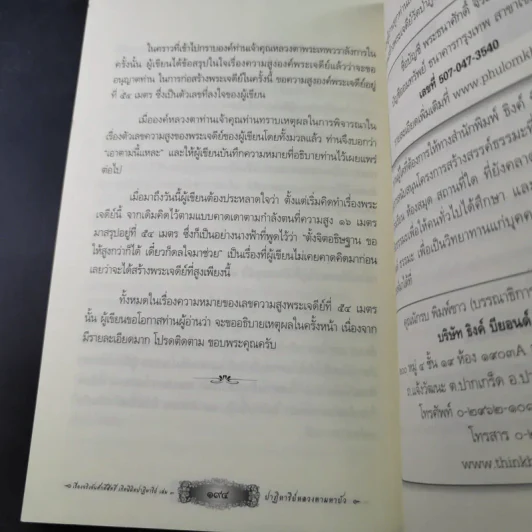 ในคราวที่เข้าไปกราบองค์ท่านเจ้าคุณหลวงตาพระเทพวราลังการใน
ครั้งนั้น ผู้เขียนได้ข้อสรุปในใจเรื่องความสูงองค์พระเจดีย์แล้วว่าจะขอ
อนุญาตท่าน ในการก่อสร้างพระเจดีย์ในครั้งนี้ ขอความสูงองค์พระเจดีย์อยู่
ที่ ๕๔ เมตร ซึ่งเป็นตัวเลขที่ลงใจของผู้เขียน
เมื่อองค์หลวงตาท่านเจ้าคุณท่านทราบเหตุผลในการพิจารณาใน
เรื่องตัวเลขความสูงของพระเจดีย์ของผู้เขียนโดยทั้งมวลแล้ว ท่านจึงบอกว่า
"เอาตามนี้แหละ" และให้ผู้เขียนบันทึกความหมายที่อธิบายท่านไว้เผยแพร่
ต่อไป
เมื่อมาถึงวันนี้ผู้เขียนต้องประหลาดใจว่า ตั้งแต่เริ่มคิดทำเรื่องพระ
เจดีย์นี้ จากเดิมคิดไว้ตามแบบคาดเดาตามกำลังตนที่ความสูง ๑๖ เมตร
มาสรุปอยู่ที่ ๕๔ เมตร ซึ่งก็เป็นอย่างนางฟ้าที่พูดไว้ว่า "ตั้งจิตอธิษฐาน ขอ
ให้สูงกว่าก็ได้ เดี๋ยวก็ดลใจมาช่วย" เป็นเรื่องที่ผู้เขียนไม่เคยคาดคิดมาก่อน
เลยว่าจะได้สร้างพระเจดีย์ที่สูงเพียงนี้
ทั้งหมดในเรื่องความหมายของเลขความสูงพระเจดีย์ที่ ๕๔ เมตร
นั้น ผู้เขียนขอโอกาสท่านผู้อ่านว่า จะขออธิบายเหตุผลในครั้งหน้า เนื่องจาก
มีรายละเอียดมาก โปรดติดตาม ขอบพระคุณครับ
๑๙๔
ปาฏิหาริย์หลวงตามหาบัว
ชื่อบัญชี พระธนาศักดิ์
ธนาคารกรุงเทพ สาขา
เลขที่ 507-047-3540
รายละเอียดเพิ่มเติมที่ www.phulom
ให้ทางสำนักพิมพ์ ธิงค์
โครงการสร้างสรรค์ธรรมะ
ห้องสมุด สถานที่ใด ที่ยังคลาด
เพื่อให้คนทั่วไปได้ศึกษา และ
ธรรมะ เพื่อเป็นวิทยาทานแก่บุคค
ได้ที่
คุณณัรบ พิมพ์ขาว (บรรณาธิการ
บริษัท ธิงค์ บียอนด์
หมู่ ๔ ชั้น ๑๙ ห้อง ๑๙๐๓A
ถ.แจ้งวัฒนะ ต.ปากเกร็ด อ.ปา
โทรศัพท์ ๐-๒๙๖๒-๑๐
โทรสาร ๐-๒
www.thinkb